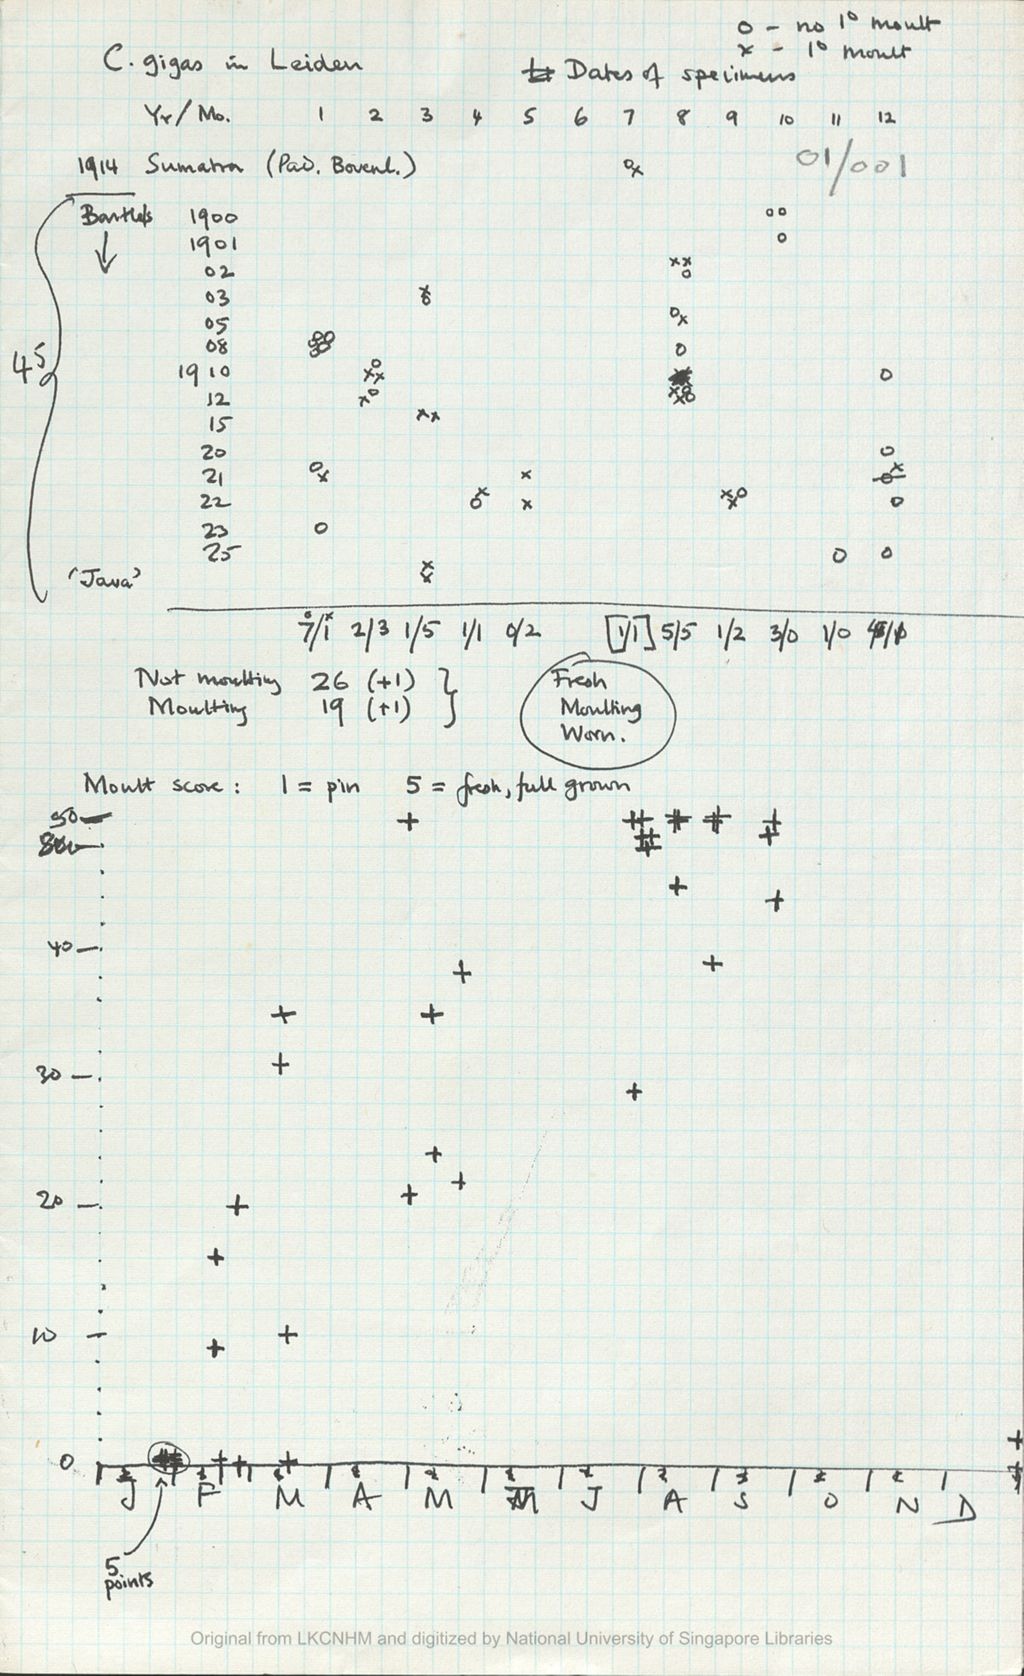 o - no 1° moult
x - 1° moult
C. gigas in Leiden
Dates of specimens
Yr/Mo. 1 2 3 4 5 6 7 8 9 10 11 12
1914 Sumatra (Pad. Bovenl.) ox
01/001
Bartels 1900 oo
1901 o
02 xx o
03 x o
05 o x
08 o
1910 o
12
15 xx
20 o
21 o x x
22 x o x x o x o
23 o
25 o o
'Java' x x
45
7/1 2/3 1/5 1/1 0/2 [1/1] 5/5 1/2 3/0 1/0
Not moulting 26 (+1)
Moulting 19 (+1)
Fresh
Moulting
Worn.
Moult score: 1 = pin 5 = fresh, full grown
50
40
30
20
10
0
J F M A M J A S O N D
5
points
Original from LKCNHM and digitized by National University of Singapore Libraries